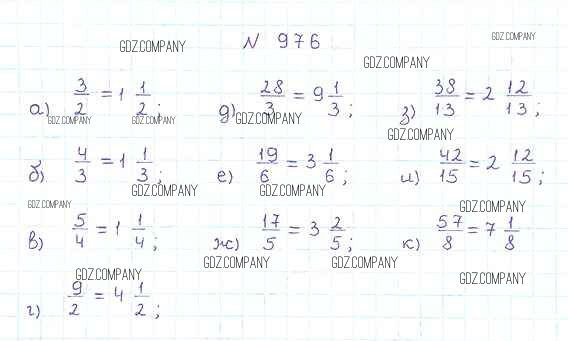 GDZ.COMPANY N 976 GDZ.COMPANY
GDZ.COMPANY
а) 3/2 = 1 1/2; д) 28/3 = 9 1/3; з) 38/13 = 2 12/13;
GDZ.COMPANY GDZ.COMPANY GDZ.COMPANY
GDZ.COMPANY
б) 4/3 = 1 1/3; е) 19/6 = 3 1/6; и) 42/15 = 2 12/15;
GDZ.COMPANY GDZ.COMPANY
GDZ.COMPANY GDZ.COMPANY
в) 5/4 = 1 1/4; ж) 17/5 = 3 2/5; к) 57/8 = 7 1/8
GDZ.COMPANY GDZ.COMPANY GDZ.COMPANY GDZ.COMPANY
г) 9/2 = 4 1/2;